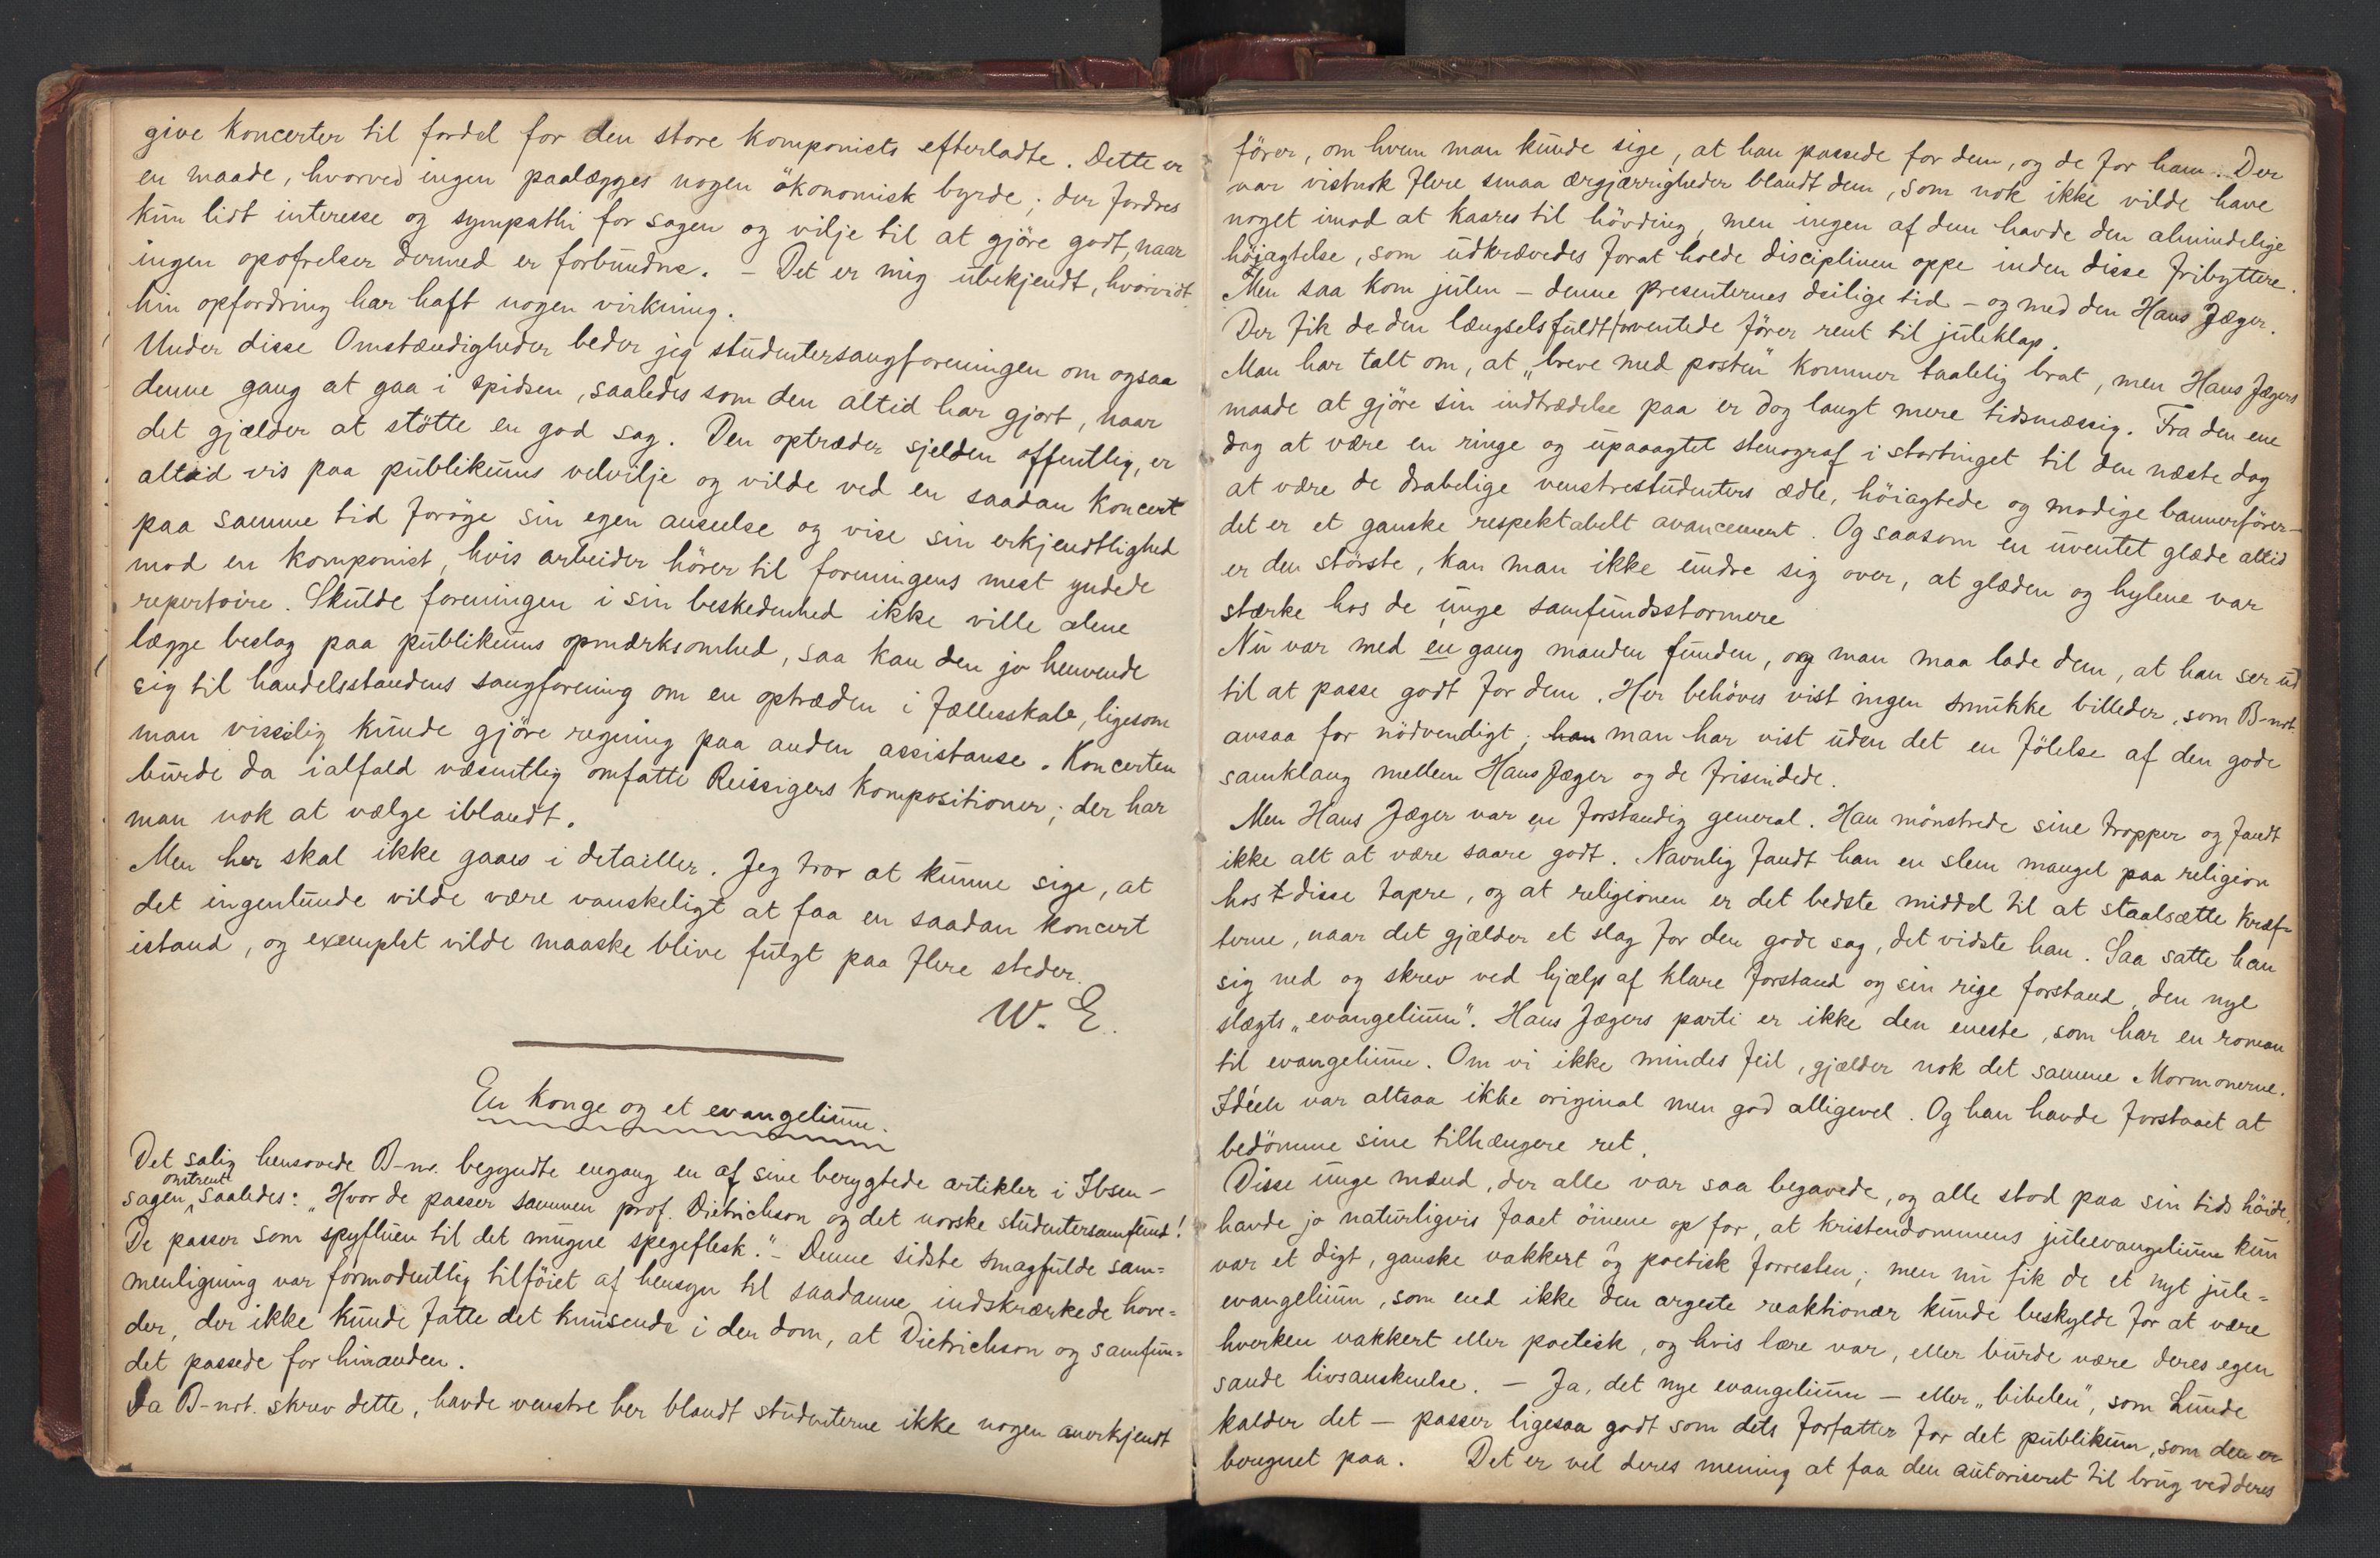 give koncerter til fordel for den store komponists efterladte. Dette er
en maade, hvorved ingen paalægges nogen ökonomisk byrde; der fordres
kun lidt interesse og sympathi for sagen og vilje til at gjöre godt, naar
ingen opofrelser dermed er forbundne. – Det er mig ubekjendt, hvorvidt
hin opfordring har haft nogen virkning.
Under disse Omstændigheder beder jeg studentersangforeningen om ogsaa
denne gang at gaa i spidsen, saaledes som den altid har gjort, naar
det gjælder at stötte en god sag. Den optræder sjelden offentlig, er
altid vis paa publikums velvilje og vilde ved en saadan koncert
paa samme tid foröge sin egen anseelse og vise sin erkjendtlighed
mod en komponist, hvis arbeider hörer til foreningens mest yndede
repertoire. Skulde foreningen i sin beskedenhed ikke ville alene
lægge beslag paa publikums opmærksomhed, saa kan den jo henvende
sig til handelsstandens sangforening om en optræden i fællesskab, ligesom
man visselig kunde gjöre regning paa anden assistanse. Koncerten
burde da ialfald væsentlig omfatte Reissigers kompositioner; der har
man nok at vælge iblandt.
Men her skal ikke gaaes i detailler. Jeg tror at kunne sige, at
det ingenlunde vilde være vanskeligt at faa en saadan koncert
istand, og exemplet vilde maaske blive fulgt paa flere steder.
W. E.
En konge og et evangelium.
Det salig hensovede B-nr. begyndte engang en af sine berygtede artikler i Ibsen-
sagen omtrent saaledes: „Hvor de passer sammen prof. Dietrichson og det norske studentersamfund!
De passer som spyfluen til det mugne spegeflesk." – Denne sidste smagfulde sam=
menligning var formodentlig tilföiet af hensyn til saadanne indskrænkede hove=
der, der ikke kunde fatte det knusende i den dom, at Dietrichson og samfun=
det passede for hinanden.
Da B-nrt. skrev dette, havde venstre her blandt studenterne ikke nogen anerkjendt
förer, om hvem man kunde sige, at han passede for dem, og de for ham. Der
var vistnok flere smaa ærgjærrigheder blandt dem, som nok ikke vilde have
noget imod at kaares til hövding, men ingen af dem havde den almindelige
höjagtelse, som udkrævedes forat holde disciplinen oppe inden disse fribyttere.
Men saa kom julen – denne presenternes deilige tid – og med den Hans Jæger.
Der fik de den længselsfuldt forventede förer rent til juleklap.
Man har talt om, at „breve med posten" kommer taalelig brat, men Hans Jægers
maade at gjöre sin indtrædelse paa er dog langt mere tidsmæssig. Fra den ene
dag at være en ringe og upaaagtet stenograf i stortinget til den næste dag
at være de drabelige venstrestudenters ædle, höiagtede og modige bannerförer –
det er et ganske respektabelt avancement. Og saasom en uventet glæde altid
er den störste, kan man ikke undre sig over, at glæden og hylene var
stærke hos de unge samfundsstormere
Nu var med en gang manden funden, og man maa lade dem, at han ser ud
til at passe godt for dem. Her behöves vist ingen smukke billeder, som B-nrt.
ansaa for nödvendigt; han man har vist uden det en fölelse af den gode
samklang mellem Hans Jæger og de frisindede.
Men Hans Jæger var en forstandig general. Han mönstrede sine tropper og fandt
ikke alt at være saare godt. Navnlig fandt han en slem mangel paa religion
hos disse tapre, og at religionen er det bedste middel til at staalsætte kræf=
terne, naar det gjælder et slag for den gode sag, det vidste han. Saa satte han
sig ned og skrev ved hjælp af klare forstand og sin rige forstand den nye
slægts „evangelium". Hans Jægers parti er ikke den eneste, som har en roman
til evangelium. Om vi ikke mindes feil, gjælder nok det samme Mormonerne.
Idéen var altsaa ikke original men god alligevel. Og han havde forstaaet at
bedömme sine tilhængere ret.
Disse unge mænd, der alle var saa begavede, og alle stod paa sin tids höide,
havde jo naturligvis faaet öinene op for, at kristendommens juleevangelium kun
var et digt, ganske vakkert og poetisk forresten; men nu fik de et nyt jule=
evangelium, som end ikke den argeste reaktionær kunde beskylde for at være
hverken vakkert eller poetisk, og hvis lære var, eller burde være deres egen
sande livsanskuelse. – Ja, det nye evangelium – eller „bibelen", som Lunde
kalder det – passer ligesaa godt som dets forfatter for det publikum, som den er
beregnet paa. Det er vel deres mening at faa den autoriseret til brug ved deres